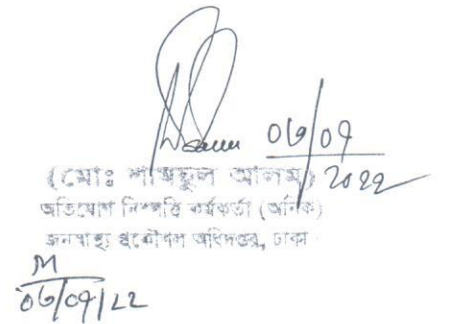 ০৬/০৭
২০২২
(মোঃ শামছুল আলম)
অভিযোগ নিষ্পত্তি কর্মকর্তা (অনিক)
জনস্বাস্থ্য প্রকৌশল অধিদপ্তর, ঢাকা
০৬/০৭/২২